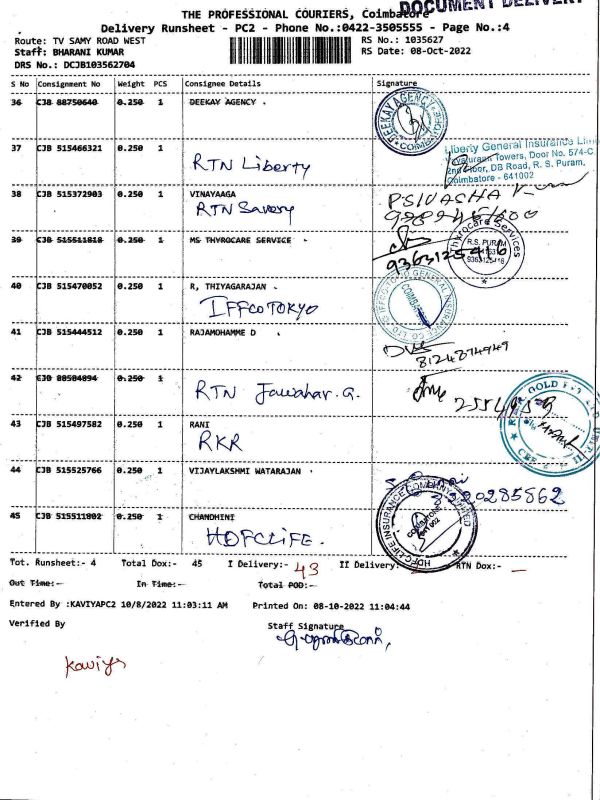 DOCUMENT DELIVERY
THE PROFESSIONAL COURIERS, Coimbatore
Delivery Runsheet - PC2 - Phone No.:0422-3505555 - Page No.:4
Route: TV SAMY ROAD WEST
RS No.: 1035627
Staff: BHARANI KUMAR
RS Date: 08-Oct-2022
DRS No.: DCJB103562704
S No Consignment No Weight PCS Consignee Details Signature
36 CJB 88750640 0.250 1 DEEKAY AGENCY .
DEEKAY AGENCY
COIMBATORE
37 CJB 515466321 0.250 1
RTN Liberty
Liberty General Insurance
Towers, Door No. 574-C
2nd Floor, DB Road, R. S. Puram,
Coimbatore - 641002
38 CJB 515372903 0.250 1 VINAYAAGA
RTN Savery
39 CJB 515511818 0.250 1 MS THYROCARE SERVICE .
9363125416
Thyrocare Services
R.S. PURAM
9363125416
40 CJB 515470052 0.250 1 R, THIYAGARAJAN .
IFFCO TOKYO
IFFCO-TOKIO GENERAL INSURANCE CO. LTD.
41 CJB 515444512 0.250 1 RAJAMOHAMME D .
8124874949
42 CJB 88504894 0.250 1
RTN Jawahar. G.
43 CJB 515497582 0.250 1 RANI
RKR
44 CJB 515525766 0.250 1 VIJAYLAKSHMI WATARAJAN .
45 CJB 515511802 0.250 1 CHANDHINI
HDFC LIFE.
HDFC-LIFE INSURANCE COMPANY LIMITED
Tot. Runsheet:- 4 Total Dox:- 45 I Delivery:- 43 II Delivery:- RTN Dox:- —
Out Time:- In Time:- Total POD:-
Entered By :KAVIYAPC2 10/8/2022 11:03:11 AM Printed On: 08-10-2022 11:04:44
Verified By
Staff Signature
Kaviya